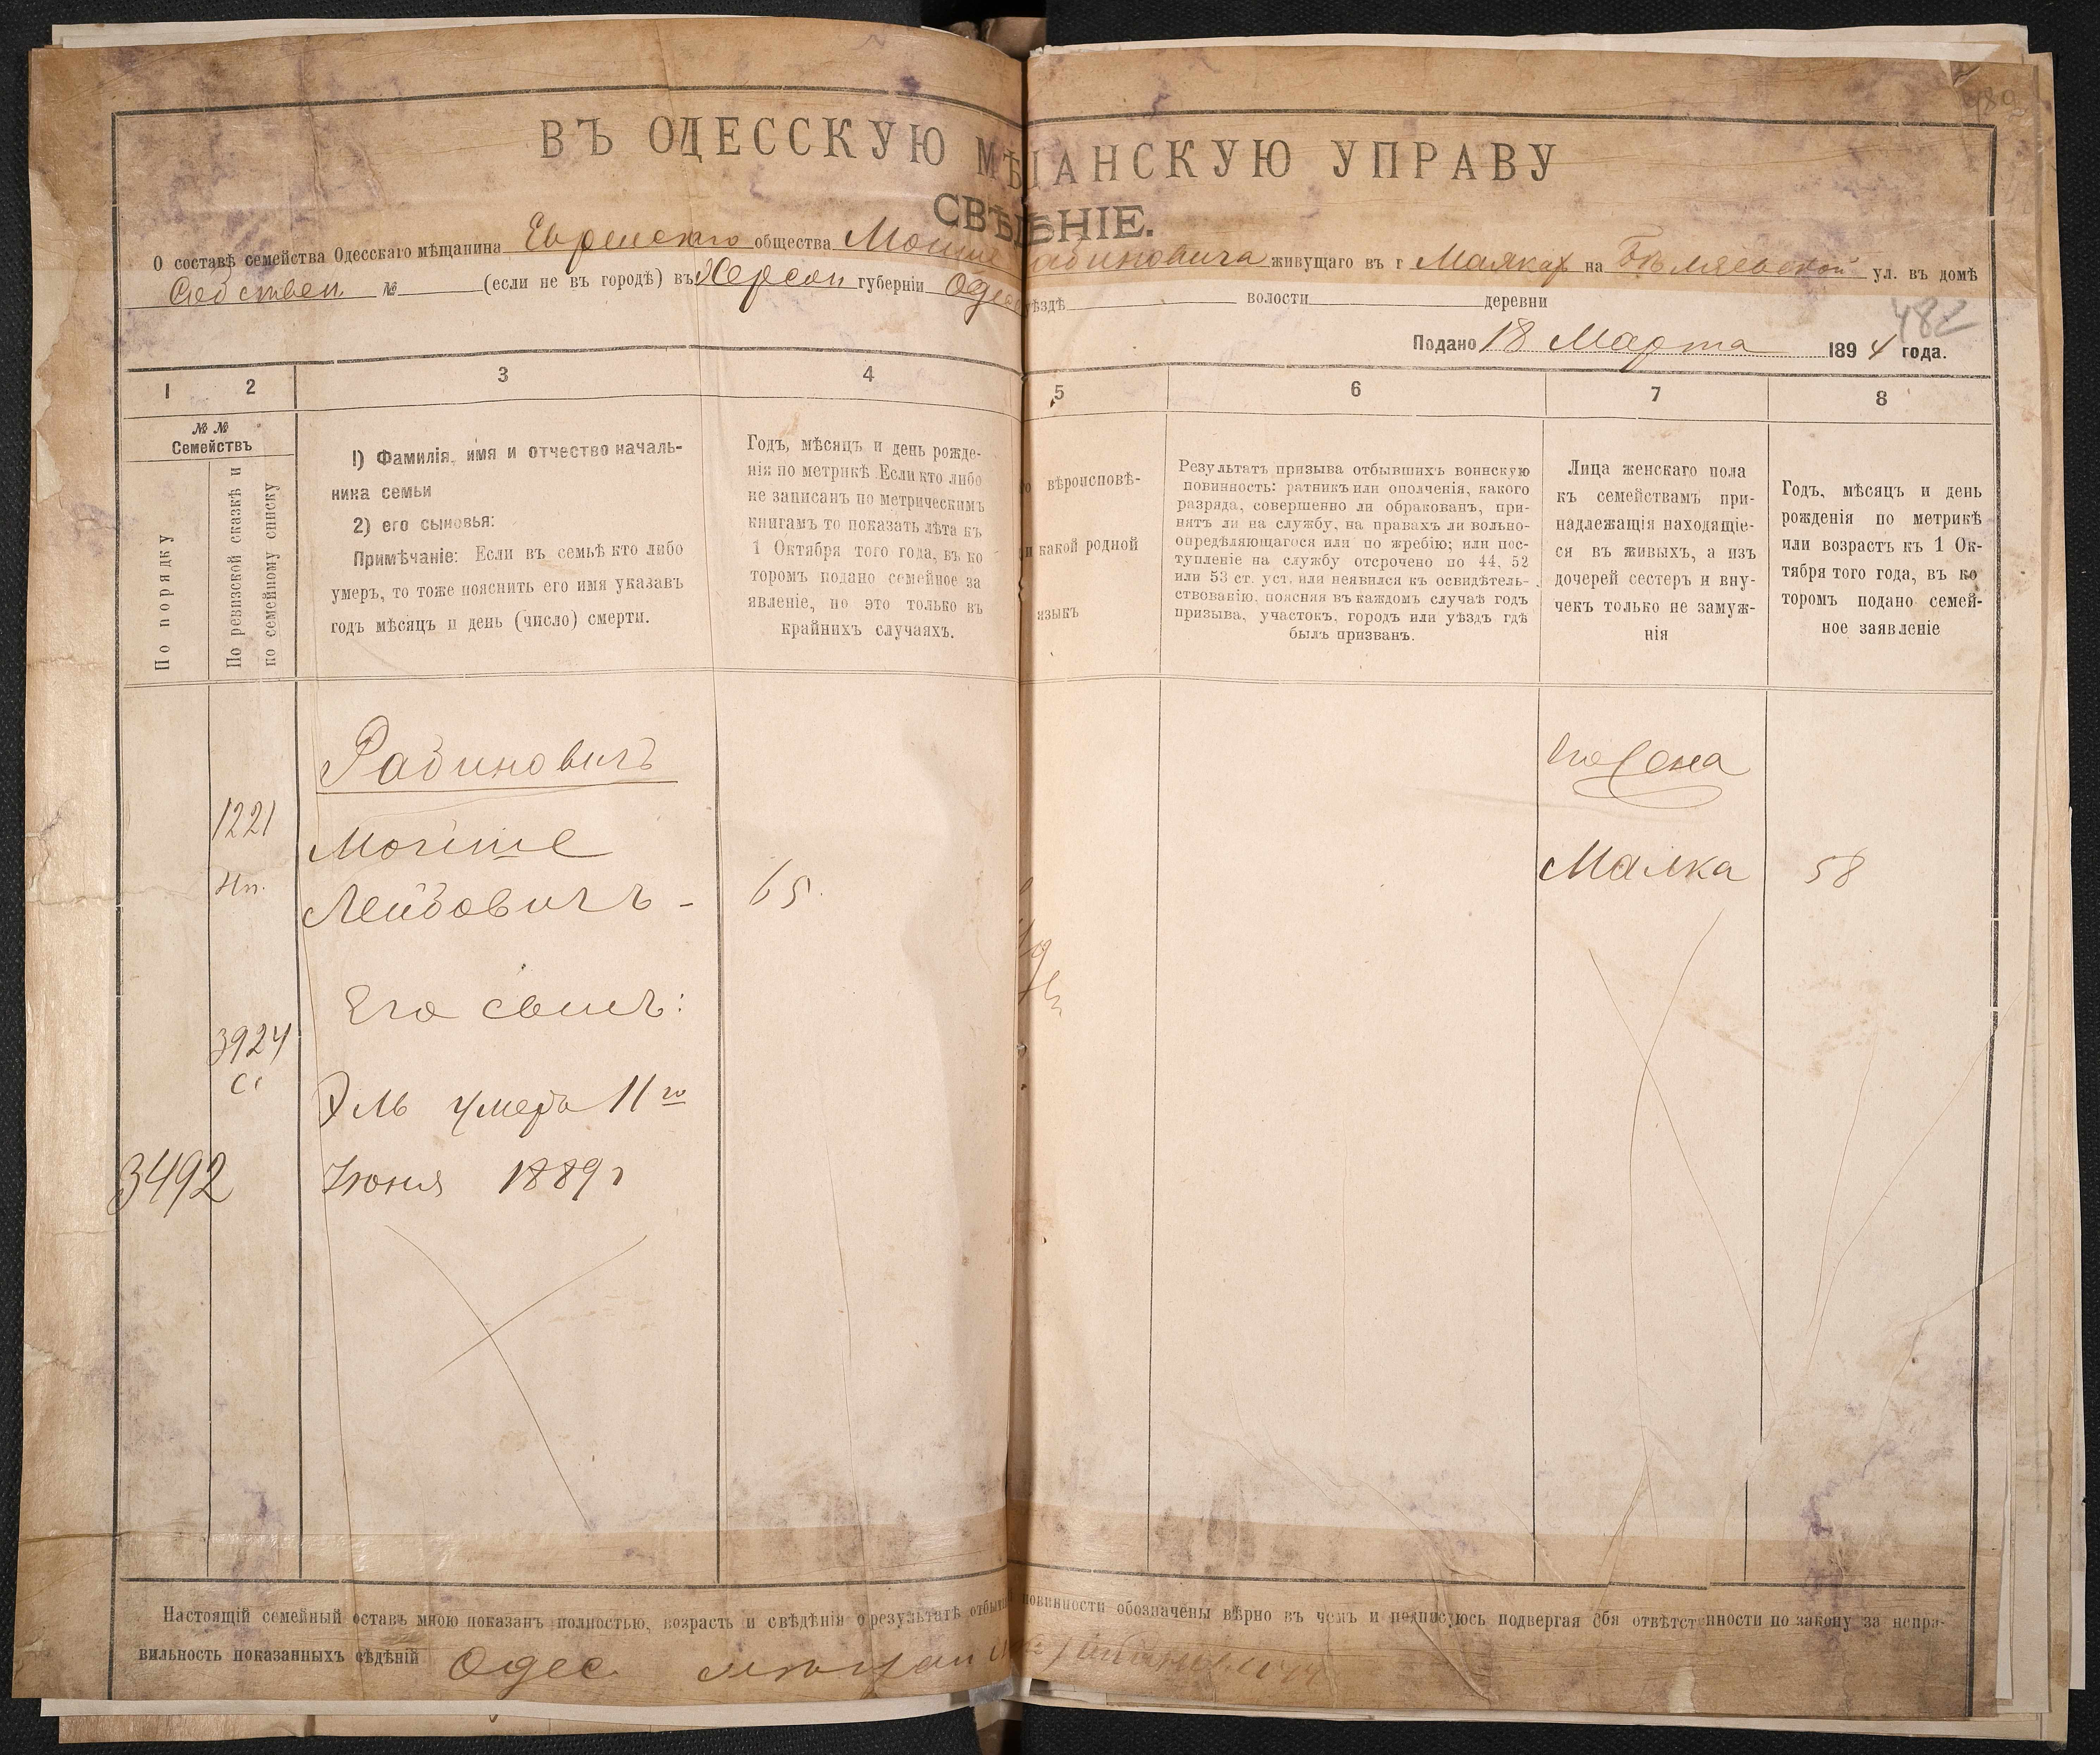 ВЪ ОДЕССКУЮ МѢЩАНСКУЮ УПРАВУ
СВѢДѢНІЕ.
О составѣ семейства Одесскаго мѣщанина Еврейскаго общества Мошие Рабиновича живущаго въ г Маяках на Бѣляевской ул. въ домѣ
Собствен № (если не въ городѣ) въ Херсон губерніи Одес уѣздѣ волости деревни
482
Подано 18 Марта 1894 года.
1 2 3 4 5 6 7 8
№ № Семействъ
По порядку
По ревизской сказкѣ и
по семейному списку
1) Фамилія, имя и отчество началь-
ника семьи
2) его сыновья:
Примѣчаніе: Если въ семьѣ кто либо
умеръ, то тоже пояснить его имя указавъ
годъ мѣсяцъ и день (число) смерти.
Годъ, мѣсяцъ и день рожде-
нія по метрикѣ Если кто либо
не записанъ по метрическимъ
книгамъ то показать лѣта къ
1 Октября того года, въ ко
торомъ подано семейное за
явленіе, но это только въ
крайнихъ случаяхъ.
вѣроисповѣ-
и какой родной
языкъ
Результатъ призыва отбывшихъ воинскую
повинность: ратникъ или ополченія, какого
разряда, совершенно ли обракованъ, при-
нятъ ли на службу, на правахъ ли вольно-
опредѣляющагося или по жребію; или пос-
тупленіе на службу отсрочено по 44, 52
или 53 ст. уст. или неявился къ освидѣтель-
ствованію, поясняя въ каждомъ случаѣ годъ
призыва, участокъ, городъ или уѣздъ гдѣ
былъ призванъ.
Лица женскаго пола
къ семействамъ при-
надлежащія находящіе-
ся въ живыхъ, а изъ
дочерей сестеръ и вну-
чекъ только не замуж-
нія
Годъ, мѣсяцъ и день
рожденія по метрикѣ
или возрастъ къ 1 Ок-
тября того года, въ ко
торомъ подано семей-
ное заявленіе
Рабиновичъ
Его жена
1221
Мошие
Малка 58
Лейбовичъ - 65.
Его сынъ:
3924
Эль умеръ 11го
3492
Іюня 1889г
Настоящій семейный оставъ мною показанъ полностью, возрастъ и свѣдѣнія о результатѣ отбыи повинности обозначены вѣрно въ чемъ и подписуюсь подвергая сбя отвѣтст нности по закону за непра-
вильность показанныхъ свѣдѣній Одес мѣщан